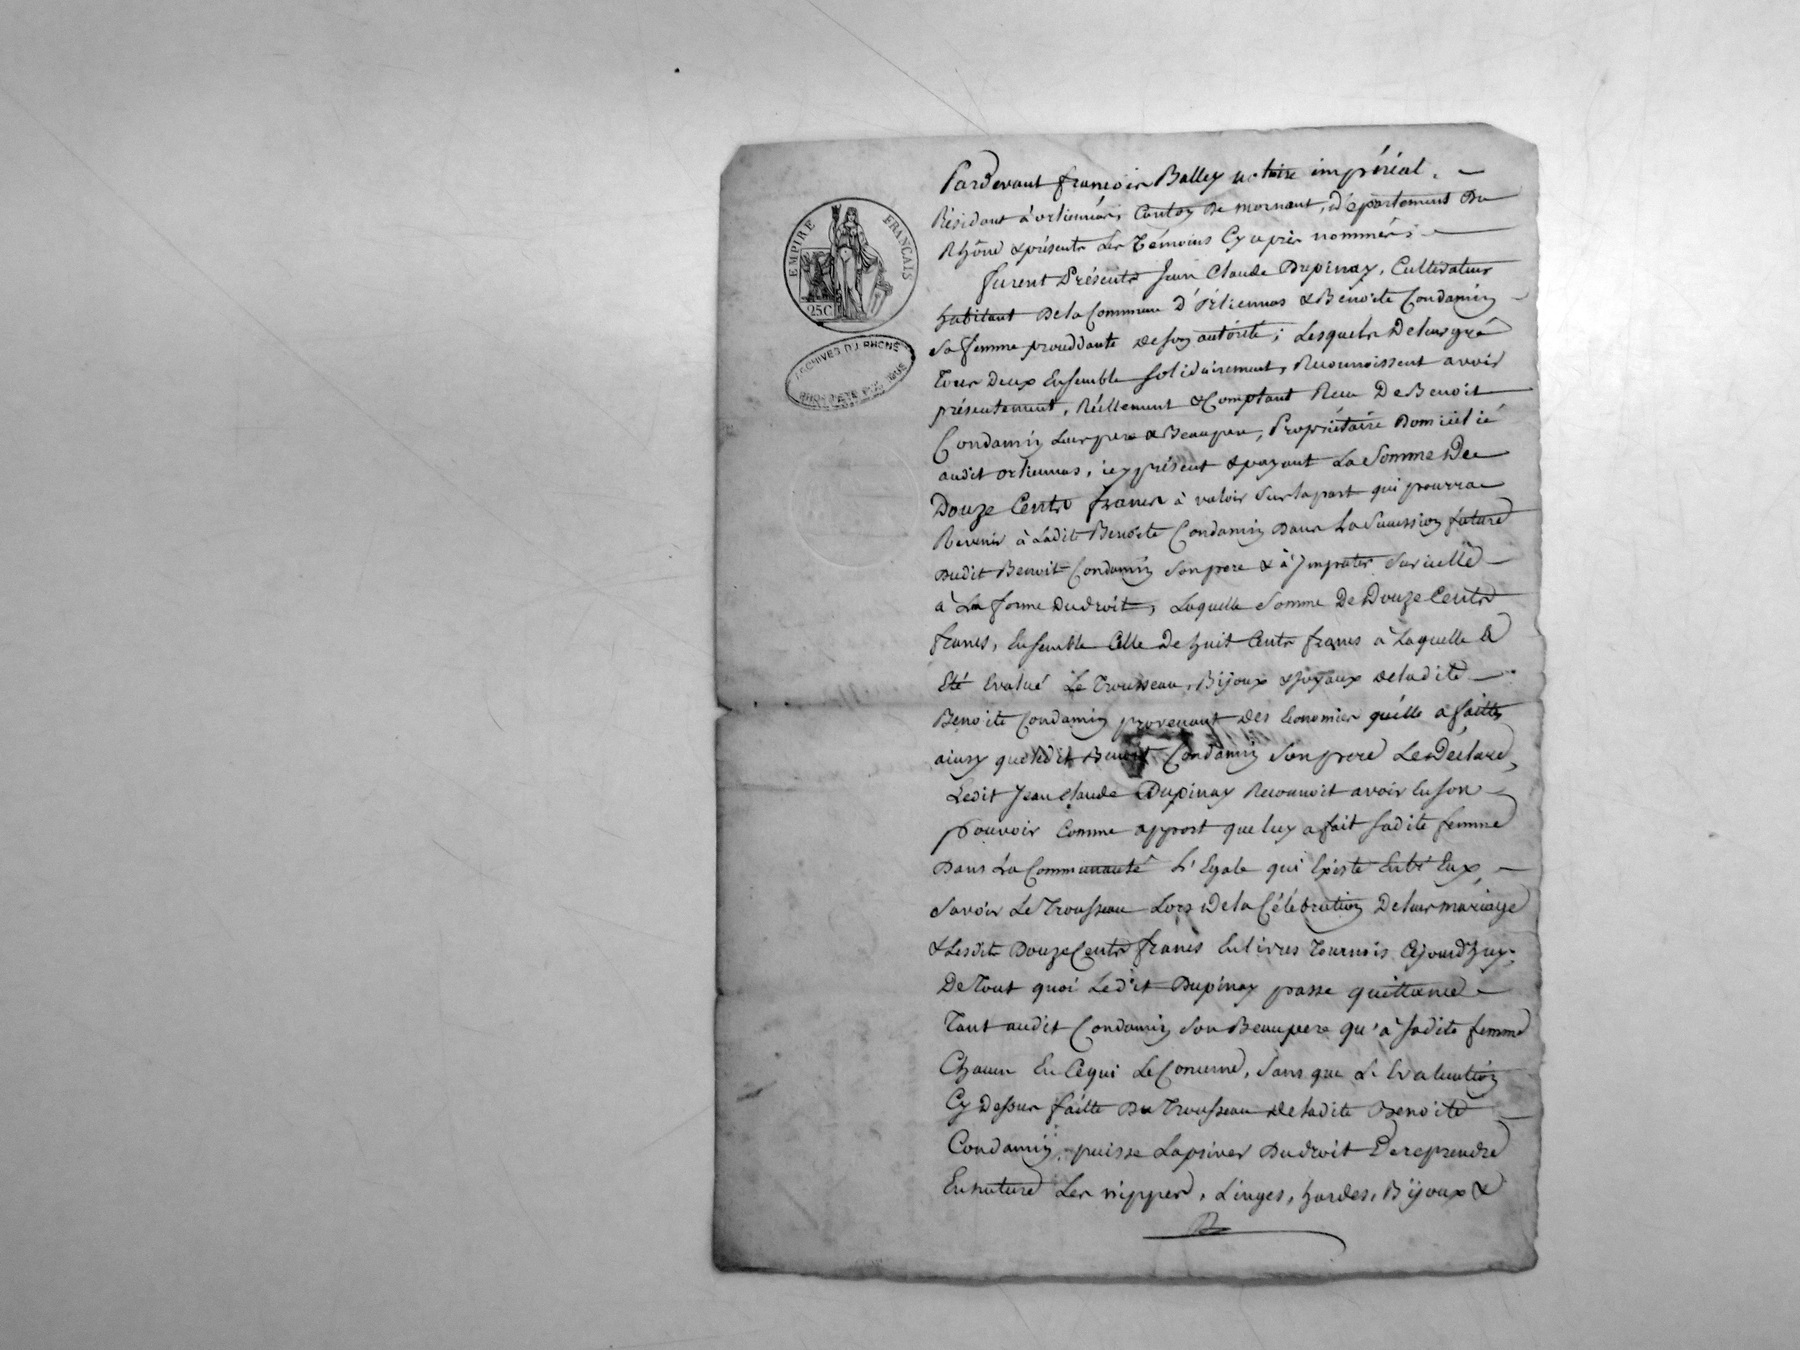 Pardevant françois Balley notaire impérial.
EMPIRE FRANÇAIS
25C
ARCHIVES DU RHONE
Résidant à orliennas, Canton de mornant, département Du
Rhône & présents Les Témoins Cy après nommés;
furent Présents Jean Claude Dupinay, Cultivateur
habitant De la Commune D'Orliennas & Benoite Condamin
Sa femme procédante de son autorité; Lesquels De leur gré
Tous Deux Ensemble solidairement, Reconnoissent avoir
présentement, Réellement & Comptant Reçu De Benoit
Condamin Leur pere & Beaupere, Propriétaire Domicilié
audit orliennas, icy présent & payant La Somme De
Douze Cents francs à valoir sur la part qui pourra
Revenir à Ladite Benoite Condamin Dans La Succession future
Dudit Benoit Condamin Son pere & à Jmputer Sur icelle
à La forme Du droit, Laquelle Somme De Douze Cents
francs, Ensemble Celle De huit Cents francs à Laquelle a
Eté Evalué Le Trousseau, Bijoux & Joyaux de ladite
Benoite Condamin provenant des Economies qu'elle a faittes
ainsy que ledit Benoit Condamin Son pere Le Déclare,
Ledit Jean Claude Dupinay Reconnoit avoir En son
pouvoir Comme apport que luy a fait Sadite femme
Dans La Communauté L'Egale qui Existe Entre Eux,
Savoir Le Trousseau Lors De la Célébration De leur mariage
& Lesdits Douze Cents francs En livres Tournois Cejourd'huy;
De Tout quoi Ledit Dupinay passe quittance
Tant audit Condamin Son Beaupere qu'à Sadite femme
Chacun En Ce qui Le Concerne, Sans que L'Evaluation
Cy Dessus faitte Du Trousseau de ladite Benoite
Condamin, puisse La priver Du droit De reprendre
En nature Les nippes, Linges, hardes, Bijoux &